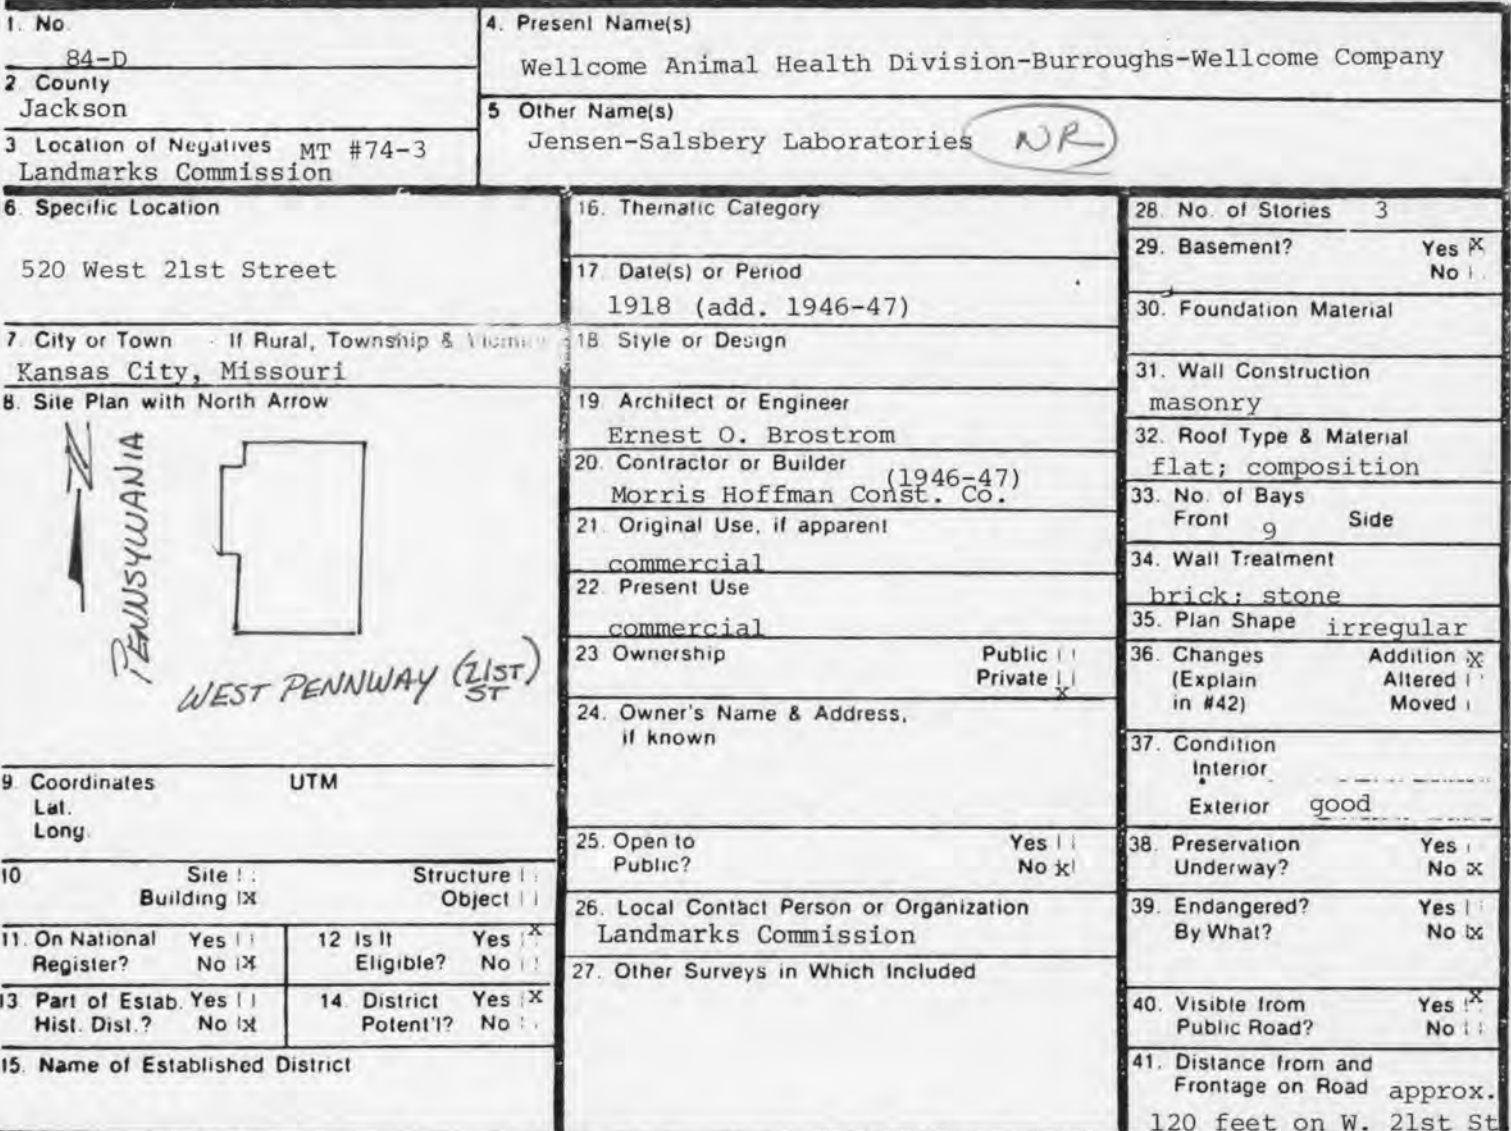 1. No.
84-D
2 County
Jackson
3 Location of Negatives MT #74-3
Landmarks Commission
4. Present Name(s)
Wellcome Animal Health Division-Burroughs-Wellcome Company
5 Other Name(s)
Jensen-Salsbery Laboratories NR
6. Specific Location
520 West 21st Street
7. City or Town If Rural, Township &
Kansas City, Missouri
8. Site Plan with North Arrow
N
PENNSYLVANIA
WEST PENNWAY (21ST)
ST
9. Coordinates UTM
Lat.
Long.
10 Site Structure
Building X Object
11. On National Yes
Register? No X
12 Is It Yes X
Eligible? No
13 Part of Estab. Yes
Hist. Dist.? No X
14. District Yes X
Potent'l? No
15. Name of Established District
16. Thematic Category
17. Date(s) or Period
1918 (add. 1946-47)
18. Style or Design
19. Architect or Engineer
Ernest O. Brostrom
20. Contractor or Builder
(1946-47)
Morris Hoffman Const. Co.
21. Original Use, if apparent
commercial
22. Present Use
commercial
23 Ownership Public
Private
x
24. Owner's Name & Address,
if known
25. Open to Yes
Public? No x
26. Local Contact Person or Organization
Landmarks Commission
27. Other Surveys in Which Included
28. No. of Stories 3
29. Basement? Yes X
No
30. Foundation Material
31. Wall Construction
masonry
32. Roof Type & Material
flat; composition
33. No. of Bays
Front 9 Side
34. Wall Treatment
brick; stone
35. Plan Shape irregular
36. Changes Addition X
(Explain Altered
in #42) Moved
37. Condition
Interior
Exterior good
38. Preservation Yes
Underway? No X
39. Endangered? Yes
By What? No X
40. Visible from Yes X
Public Road? No
41. Distance from and
Frontage on Road approx.
120 feet on W. 21st St